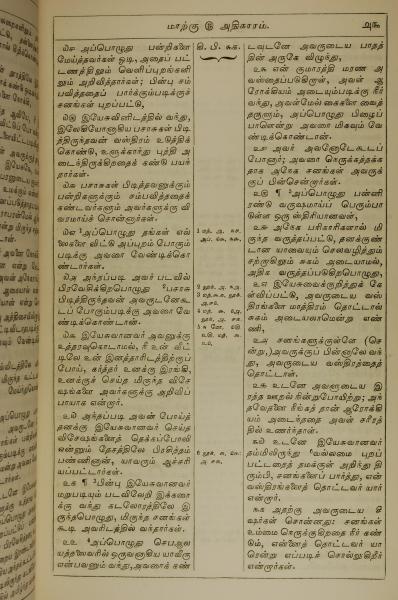 மாற்கு ௫ அதிகாரம்.
௰௪ அப்பொழுது பன்றிகளை
மேய்த்தவர்கள் ஓடி, அதைப் பட்
டணத்திலும் வெளிப்புறங்களி
லும் அறிவித்தார்கள்; பின்பு சம்
பவித்ததைப் பார்க்கும்படிக்குச்
சனங்கள் புறப்பட்டு,
௰௫ இயேசுவினிடத்தில் வந்து,
இலேகியோனாகிய பசாசுகள் பிடி
த்திருந்தவன் வஸ்திரம் உடுத்திக்
கொண்டு, உளுக்காந்து புத்தி அ
டைந்திருக்கிறதைக் கண்டு பயந்
தார்கள்.
௰௬ பசாசுகள் பிடித்தவனுக்கும்
பன்றிகளுக்கும் சம்பவித்ததைக்
கண்டவர்களும் அவர்களுக்கு வி
வரமாய்ச் சொன்னார்கள்.
௰௭ அப்பொழுது தங்கள் எல்
லைகளை விட்டு அப்புறம் போகும்
படிக்கு அவரை வேண்டிக்கொ
ண்டார்கள்.
௰௮ அந்தப்படி அவர் படவில்
பிரவேசிக்கிறபொழுது பசாசு
பிடித்திருந்தவன் அவருடனேகூ
டப் போகும்படிக்கு அவரை வே
ண்டிக்கொண்டான்.
௰௯ இயேசுவானவர் அவனுக்கு
உத்தரவுகொடாமல், நீ உன் வீட்
டிலே உன் இனத்தாரிடத்திற்குப்
போய், கர்த்தர் உனக்கு இரங்கி,
உனக்குச் செய்த மிகுந்த விசே
ஷங்களை அவர்களுக்கு அறிவிப்
பாயாக என்றார்.
௨௰ அந்தப்படி அவன் போய்த்
தனக்கு இயேசுவானவர் செய்த
விசேஷங்களைத் தெக்கப்போலி
என்னும் தேசத்திலே பிரசித்தம்
பண்ணினான், யாவரும் ஆச்சரி
யப்பட்டார்கள்.
௨௧ ¶ பின்பு இயேசுவானவர்
மறுபடியும் படவிலேறி இக்கரை
க்கு வந்து கடலோரத்திலே இ
ருந்தபொழுது, மிகுந்த சனங்கள்
கூடி அவரிடத்தில் வந்தார்கள்.
௨௨ அப்பொழுது செபஆல
யத்தலைவரில் ஒருவனாகிய யாவீரு
என்பவனும் வந்து, அவரைக் கண்
கி. பி. ௩௧.
டவுடனே அவருடைய பாதத்
தின் அருகே விழுந்து,
௨௩ என் குமாரத்தி மரண அ
வஸ்தைப்படுகிறாள், அவள் ஆ
ரோக்கியம் அடையும்படிக்கு நீர்
வந்து, அவள்மேல் கைகளை வைத்
தருளும், அப்பொழுது பிழைப்
பாளென்று அவரை மிகவும் வே
ண்டிக்கொண்டான்.
௨௪ அவர் அவனுடனேகூடப்
போனார்; அவரை நெருக்கத்தக்க
தாக அநேக சனங்கள் அவருக்
குப் பின்சென்றார்கள்.
௨௫ ¶ அப்பொழுது பன்னி
ரண்டு வருஷமாய்ப் பெரும்பா
டுள்ள ஒரு ஸ்திரியானவள்,
௨௬ அநேக பரிகாரிகளால் மி
குந்த வருத்தப்பட்டு, தனக்குண்
டான யாவையும் செலவழித்தும்
சற்றாகிலும் சுகம் அடையாமல்,
அதிக வருத்தப்படுகிறபொழுது,
௨௭ இயேசுவைக்குறித்துக் கே
ள்விப்பட்டு, அவருடைய வஸ்
திரங்களை மாத்திரம் தொட்டால்
சுகம் அடையலாமென்று எண்
ணி,
௨௮ சனங்களுக்குள்ளே (சென்
று,) அவருக்குப் பின்னாலே வந்
து, அவருடைய வஸ்திரத்தைத்
தொட்டாள்.
௨௯ உடனே அவளுடைய இர
த்த ஊறல் நின்றுபோயிற்று; அந்
தவேதனை நீங்கத் தான் ஆரோக்கி
யம் அடைந்ததை அவள் சரீரத்
தில் உணர்ந்தாள்.
௩௰ உடனே இயேசுவானவர்
தம்மிலிருந்து வல்லமை புறப்
பட்டதைத் தமக்குள் அறிந்து திரு
ம்பி, சனங்களைப் பார்த்து, என்
வஸ்திரங்களைத் தொட்டவர் யார்
என்றார்.
௩௧ அதற்கு அவருடைய சீ
ஷர்கள் சொன்னது: சனங்கள்
உம்மை நெருக்குகிறதை நீர் கண்
டும், என்னைத் தொட்டவர் யா
ரென்று எப்படிச் சொல்லுகிறீர்
என்றார்கள்.